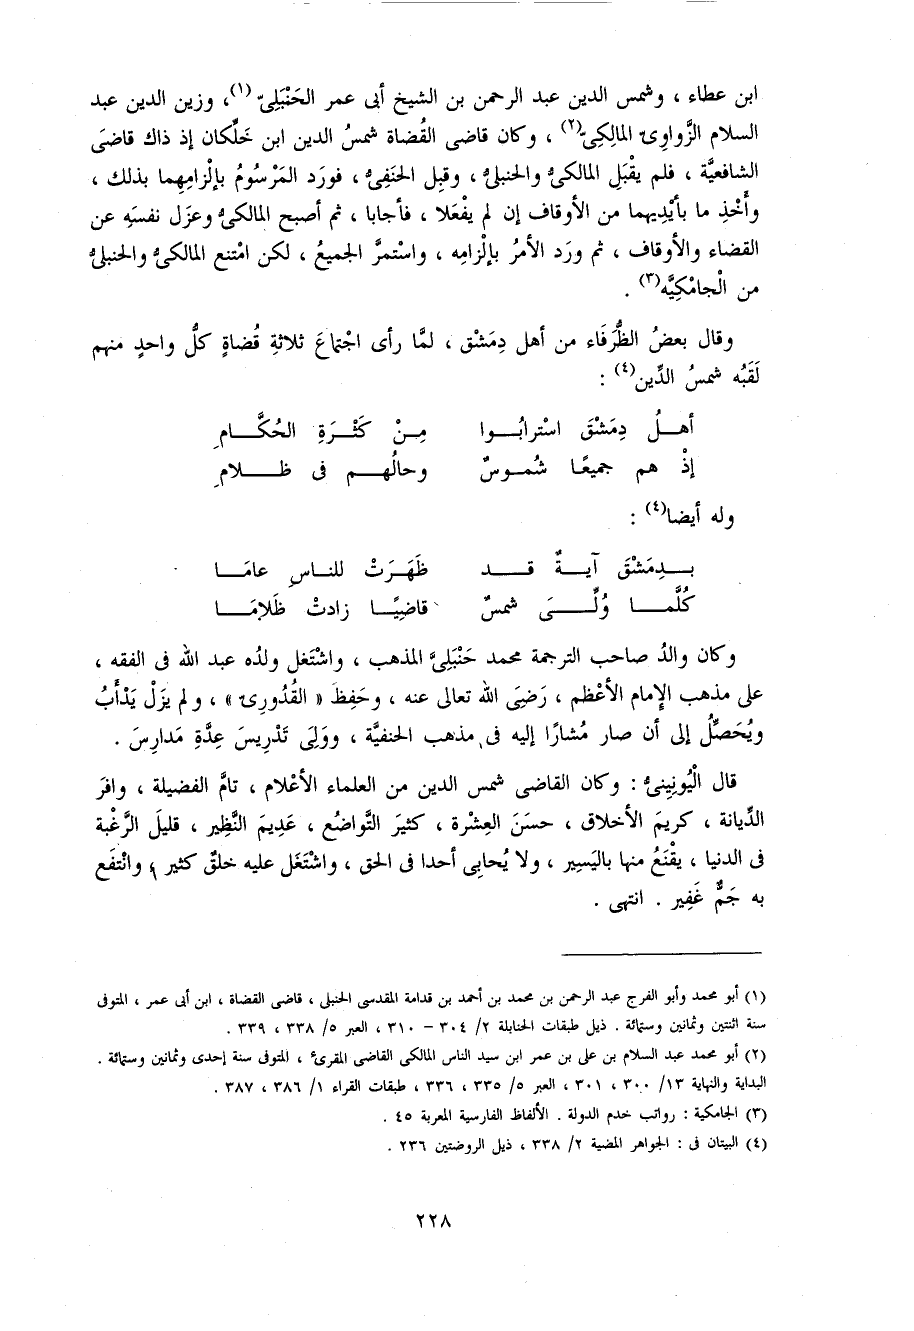 ابن عطاء ، وشمس الدين عبد الرحمن بن الشيخ أبى عمر الحَنْبَلِىّ (١)، وزين الدين عبد
السلام الزَّواوِىّ المالِكِىّ(٢) ، وكان قاضى القُضاة شمسُ الدين ابن خَلِّكان إذ ذاك قاضىَ
الشافعيَّة ، فلم يقْبَلِ المالكىُّ والحنبلىُّ ، وقبِل الحنَفِىُّ ، فورَد المَرْسُومُ بإلْزامِهما بذلك ،
وأَخْذِ ما بأيْدِيهما من الأوقاف إن لم يفْعَلا ، فأجابا ، ثم أصبح المالكىُّ وعزَل نفسَه عن
القضاء والأوقاف ، ثم ورَد الأمرُ بإلْزامِه ، واسْتمرَّ الجميعُ ، لكن امْتنع المالكىُّ والحنبلىُّ
من الْجامْكِيَّه(٣) .
وقال بعضُ الظُّرَفَاء من أهل دِمَشْق ، لمَّا رأى اجْتماعَ ثلاثةِ قُضاةٍ كلُّ واحدٍ منهم
لَقَبُه شمسُ الدِّين(٤) :
أهـلُ دِمَشْقَ اسْترابُـوا مِـنْ كَثْـرَةِ الحُكَّـامِ
إذْ هم جميعًا شُموسٌ وحالُهـم فى ظـلامِ
وله أيضا(٤) :
بـدِمَشْقَ آيـةٌ قـد ظَهَـرَتْ للنـاسِ عامَـا
كُلَّمـا وُلِّـىَ شمسٌ قاضِيًـا زادتْ ظَلامَـا
وكان والدُ صاحب الترجمة محمد حَنْبَلِىَّ المذهب ، واشْتغل ولدُه عبد الله فى الفقه ،
على مذهب الإمام الأعْظم ، رَضِىَ الله تعالى عنه ، وحَفِظَ « القُدُورِىّ » ، ولم يزَلْ يَدْأَبُ
ويُحَصِّلُ إلى أن صار مُشارًا إليه فى مذهب الحنفيَّة ، ووَلِىَ تَدْرِيسَ عِدَّةِ مَدارِسَ .
قال الْيُونِينىُّ : وكان القاضى شمس الدين من العلماء الأعْلام ، تامَّ الفضيلة ، وافرَ
الدِّيانة ، كريمَ الأخلاق ، حسَنَ العِشْرة ، كثيرَ التَّواضُع ، عَدِيمَ النَّظِير ، قليلَ الرَّغْبة
فى الدنيا ، يقْنَعُ منها باليَسِير ، ولا يُحابِى أحدا فى الحق ، واشْتغَل عليه خلقٌ كثير ، وانْتفَع
به جَمٌّ غَفِير . انتهى .
(١) أبو محمد وأبو الفرج عبد الرحمن بن محمد بن أحمد بن قدامة المقدسى الحنبلى ، قاضى القضاة ، ابن أبى عمر ، المتوفى
سنة اثنتين وثمانين وستمائة . ذيل طبقات الحنابلة ٢/ ٣٠٤ – ٣١٠ ، العبر ٥/ ٣٣٨ ، ٣٣٩ .
(٢) أبو محمد عبد السلام بن على بن عمر ابن سيد الناس المالكى القاضى المقرئ ، المتوفى سنة إحدى وثمانين وستمائة .
البداية والنهاية ١٣/ ٣٠٠ ، ٣٠١ ، العبر ٥/ ٣٣٥ ، ٣٣٦ ، طبقات القراء ١/ ٣٨٦ ، ٣٨٧ .
(٣) الجامكية : رواتب خدم الدولة . الألفاظ الفارسية المعربة ٤٥ .
(٤) البيتان فى : الجواهر المضية ٢/ ٣٣٨ ، ذيل الروضتين ٢٣٦ .
٢٢٨